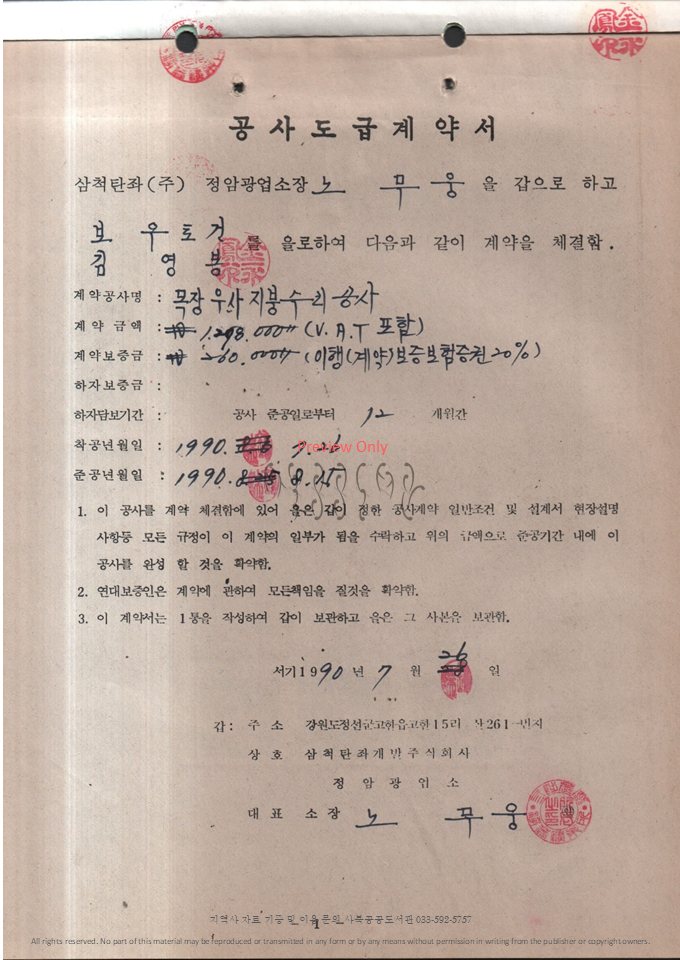 공사도급계약서
삼척탄좌(주) 정암광업소장 노 무 웅 을 갑으로 하고
보 우 토 건
김 영 봉 를 을로하여 다음과 같이 계약을 체결함.
계약공사명 : 목장 우사 지붕수리 공사
계 약 금 액 : 1,298,000 (V.A.T 포함)
계약보증금 : 260,000 (이행(계약)보증보험증권 20%)
하자보증금 :
하자담보기간 : 공사 준공일로부터 12 개월간
착공년월일 : 1990. 7. 26
Preview Only
준공년월일 : 1990. 8. 15
1. 이 공사를 계약 체결함에 있어 을은 갑이 정한 공사계약 일반조건 및 설계서 현장설명
사항등 모든 규정이 이 계약의 일부가 됨을 수락하고 위의 금액으로 준공기간 내에 이
공사를 완성 할 것을 확약함.
2. 연대보증인은 계약에 관하여 모든책임을 질것을 확약함.
3. 이 계약서는 1통을 작성하여 갑이 보관하고 을은 그 사본을 보관함.
서기1990년 7 월 26 일
갑: 주 소 강원도정선군고한읍고한15리 산261-번지
상 호 삼척탄좌개발주식회사
정 암 광 업 소
대 표 소 장 노 무 웅
지역사 자료 기증 및 이용 문의 사북공공도서관 033-592-5757
1
All rights reserved. No part of this material may be reproduced or transmitted in any form or by any means without permission in writing from the publisher or copyright owners.